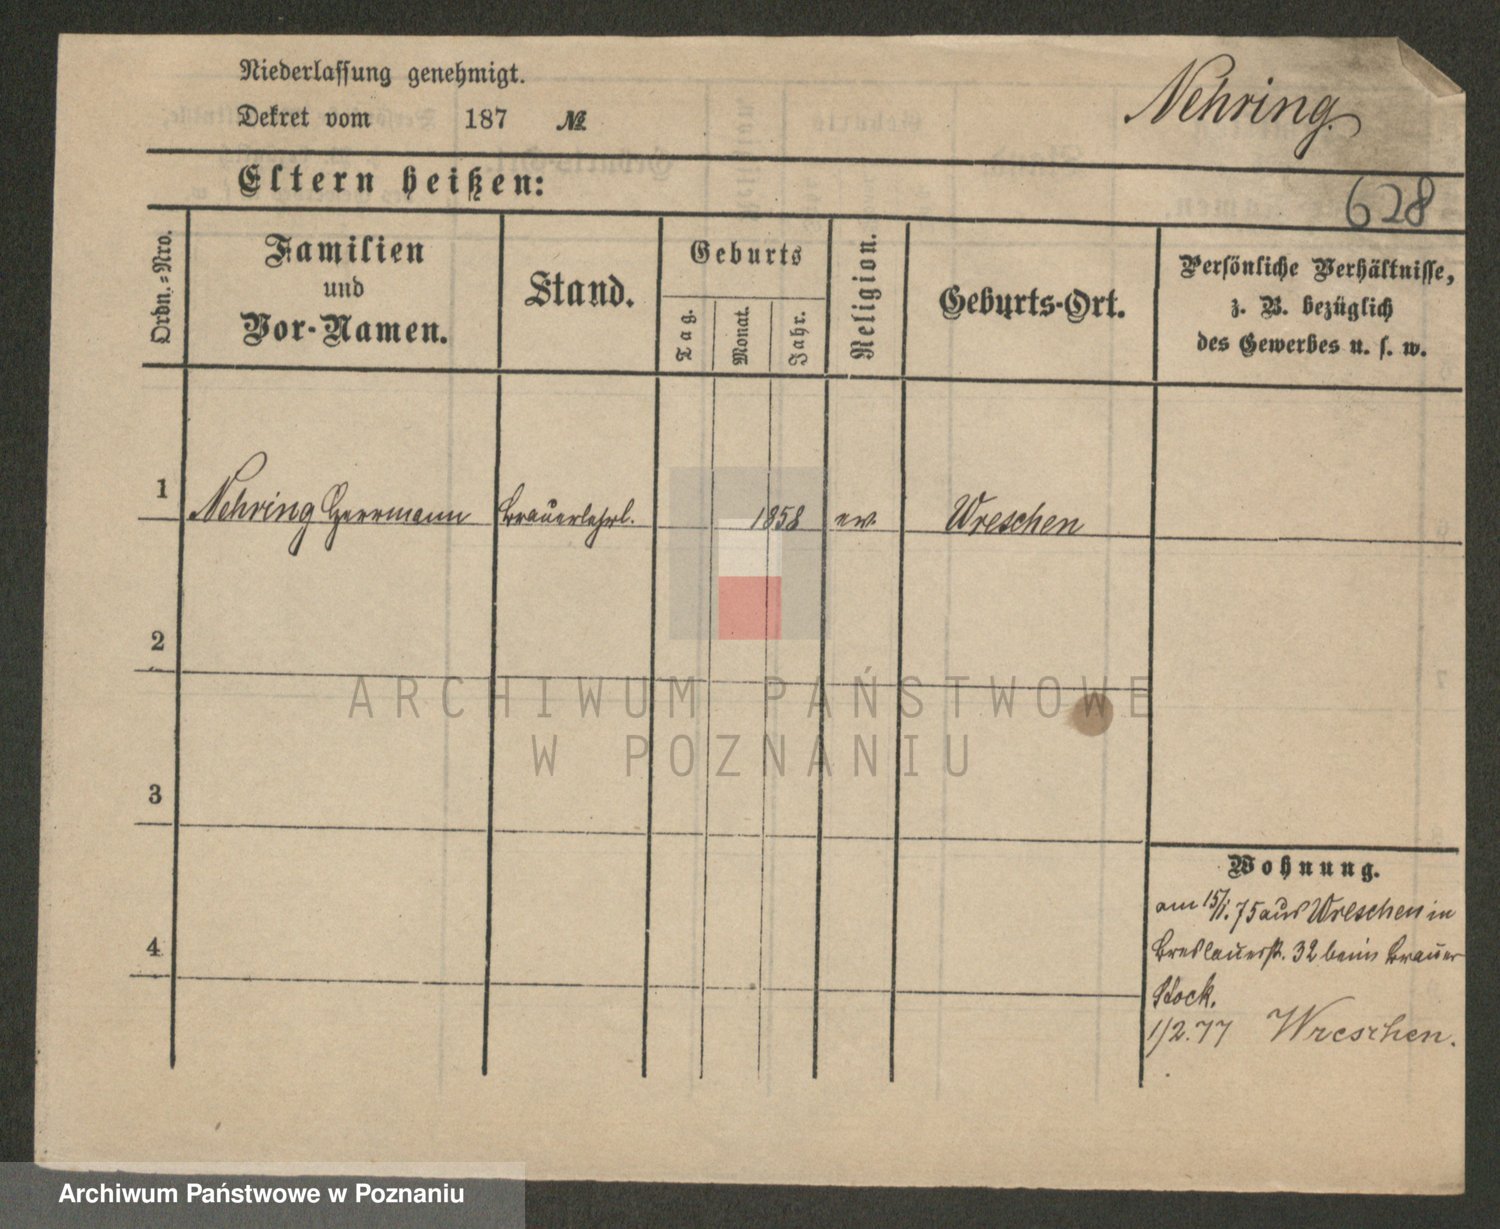 Niederlassung genehmigt.
Dekret vom 187 №
Nehring.
Eltern heißen:
628
Ordn.-Nro.
Familien
und
Vor-Namen.
Stand.
Geburts
Tag.
Monat.
Jahr.
Religion.
Geburts-Ort.
Persönliche Verhältnisse,
z. B. bezüglich
des Gewerbes u. s. w.
1 Nehring Herrmann Brauerlehrl. 1858 ev. Wreschen
2
3
4
Wohnung.
am 15/1.75 aus Wreschen in
Breslauerst. 32 beim Brauer
Stock.
1/2.77 Wreschen.
ARCHIWUM PAŃSTWOWE
W POZNANIU
Archiwum Państwowe w Poznaniu